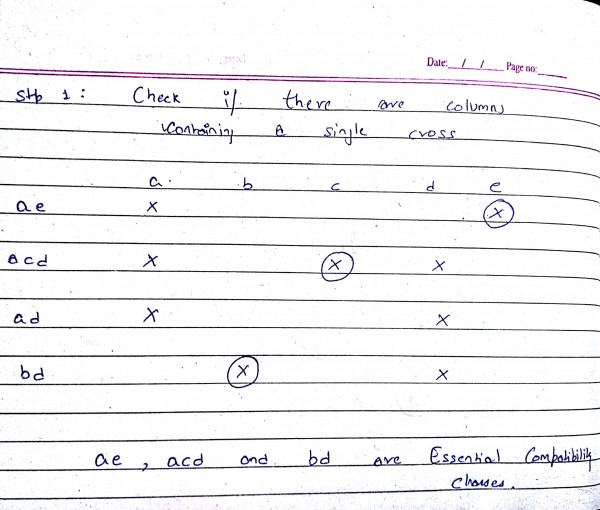 Date: / / Page no:
step 1 : Check if there are columns
containing a single cross
a. b c d e
ae x x
acd x x x
ad x x
bd x x
ae , acd and bd are Essential Compatibility
classes.